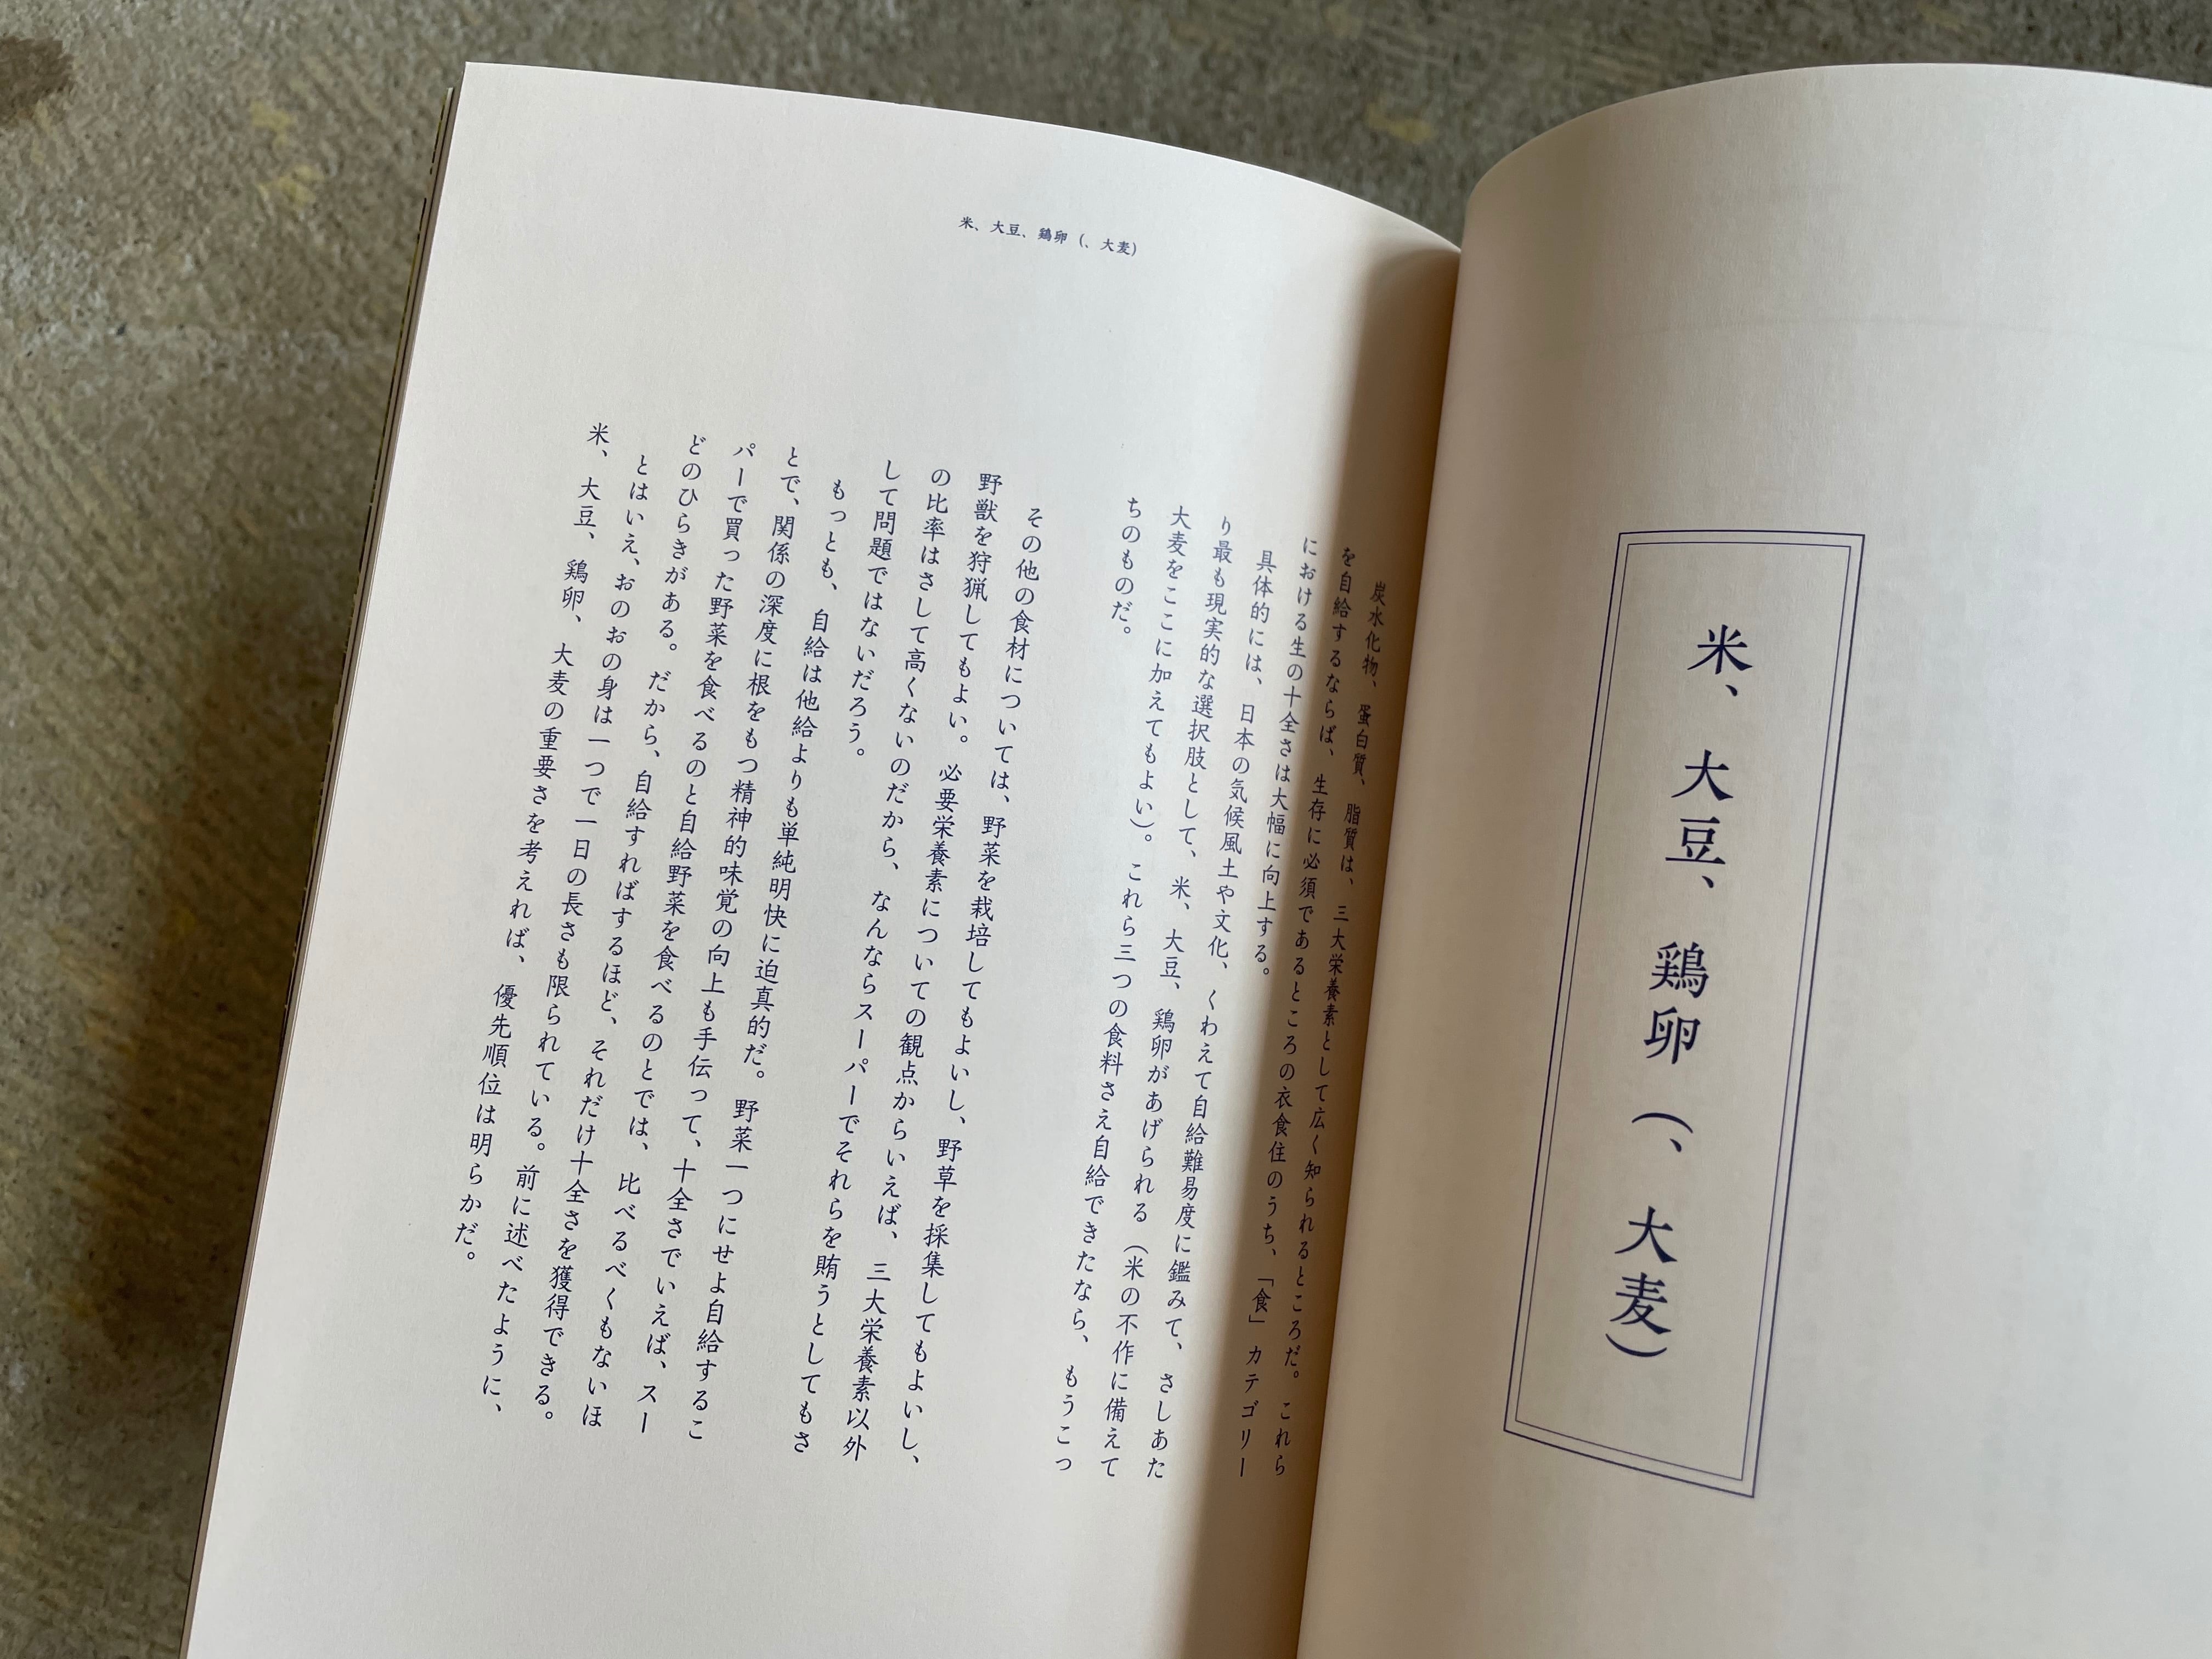 米、大豆、鶏卵（、大麦）
米、大豆、鶏卵（、大麦）
炭水化物、蛋白質、脂質は、三大栄養素として広く知られるところだ。これら
を自給するならば、生存に必須であるところの衣食住のうち、「食」カテゴリー
における生の十全さは大幅に向上する。
具体的には、日本の気候風土や文化、くわえて自給難易度に鑑みて、さしあた
り最も現実的な選択肢として、米、大豆、鶏卵があげられる（米の不作に備えて
大麦をここに加えてもよい）。これら三つの食料さえ自給できたなら、もうこっ
ちのものだ。
その他の食材については、野菜を栽培してもよいし、野草を採集してもよいし、
野獣を狩猟してもよい。必要栄養素についての観点からいえば、三大栄養素以外
の比率はさして高くないのだから、なんならスーパーでそれらを賄うとしてもさ
して問題ではないだろう。
もっとも、自給は他給よりも単純明快に迫真的だ。野菜一つにせよ自給するこ
とで、関係の深度に根をもつ精神的味覚の向上も手伝って、十全さでいえば、スー
パーで買った野菜を食べるのと自給野菜を食べるのとでは、比べるべくもないほ
どのひらきがある。だから、自給すればするほど、それだけ十全さを獲得できる。
とはいえ、おのおの身は一つで一日の長さも限られている。前に述べたように、
米、大豆、鶏卵、大麦の重要さを考えれば、優先順位は明らかだ。